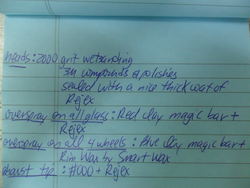 heads: 2000 grit wetsanding
3M compounds & polishes
sealed with a nice thick coat of
Rejex
overspray on all glass: Red clay magic bar +
Rejex
overspray on all 4 wheels: Blue clay magic bar +
Rim Wax by Smart Wax
exhaust tip: #0000 + Rejex